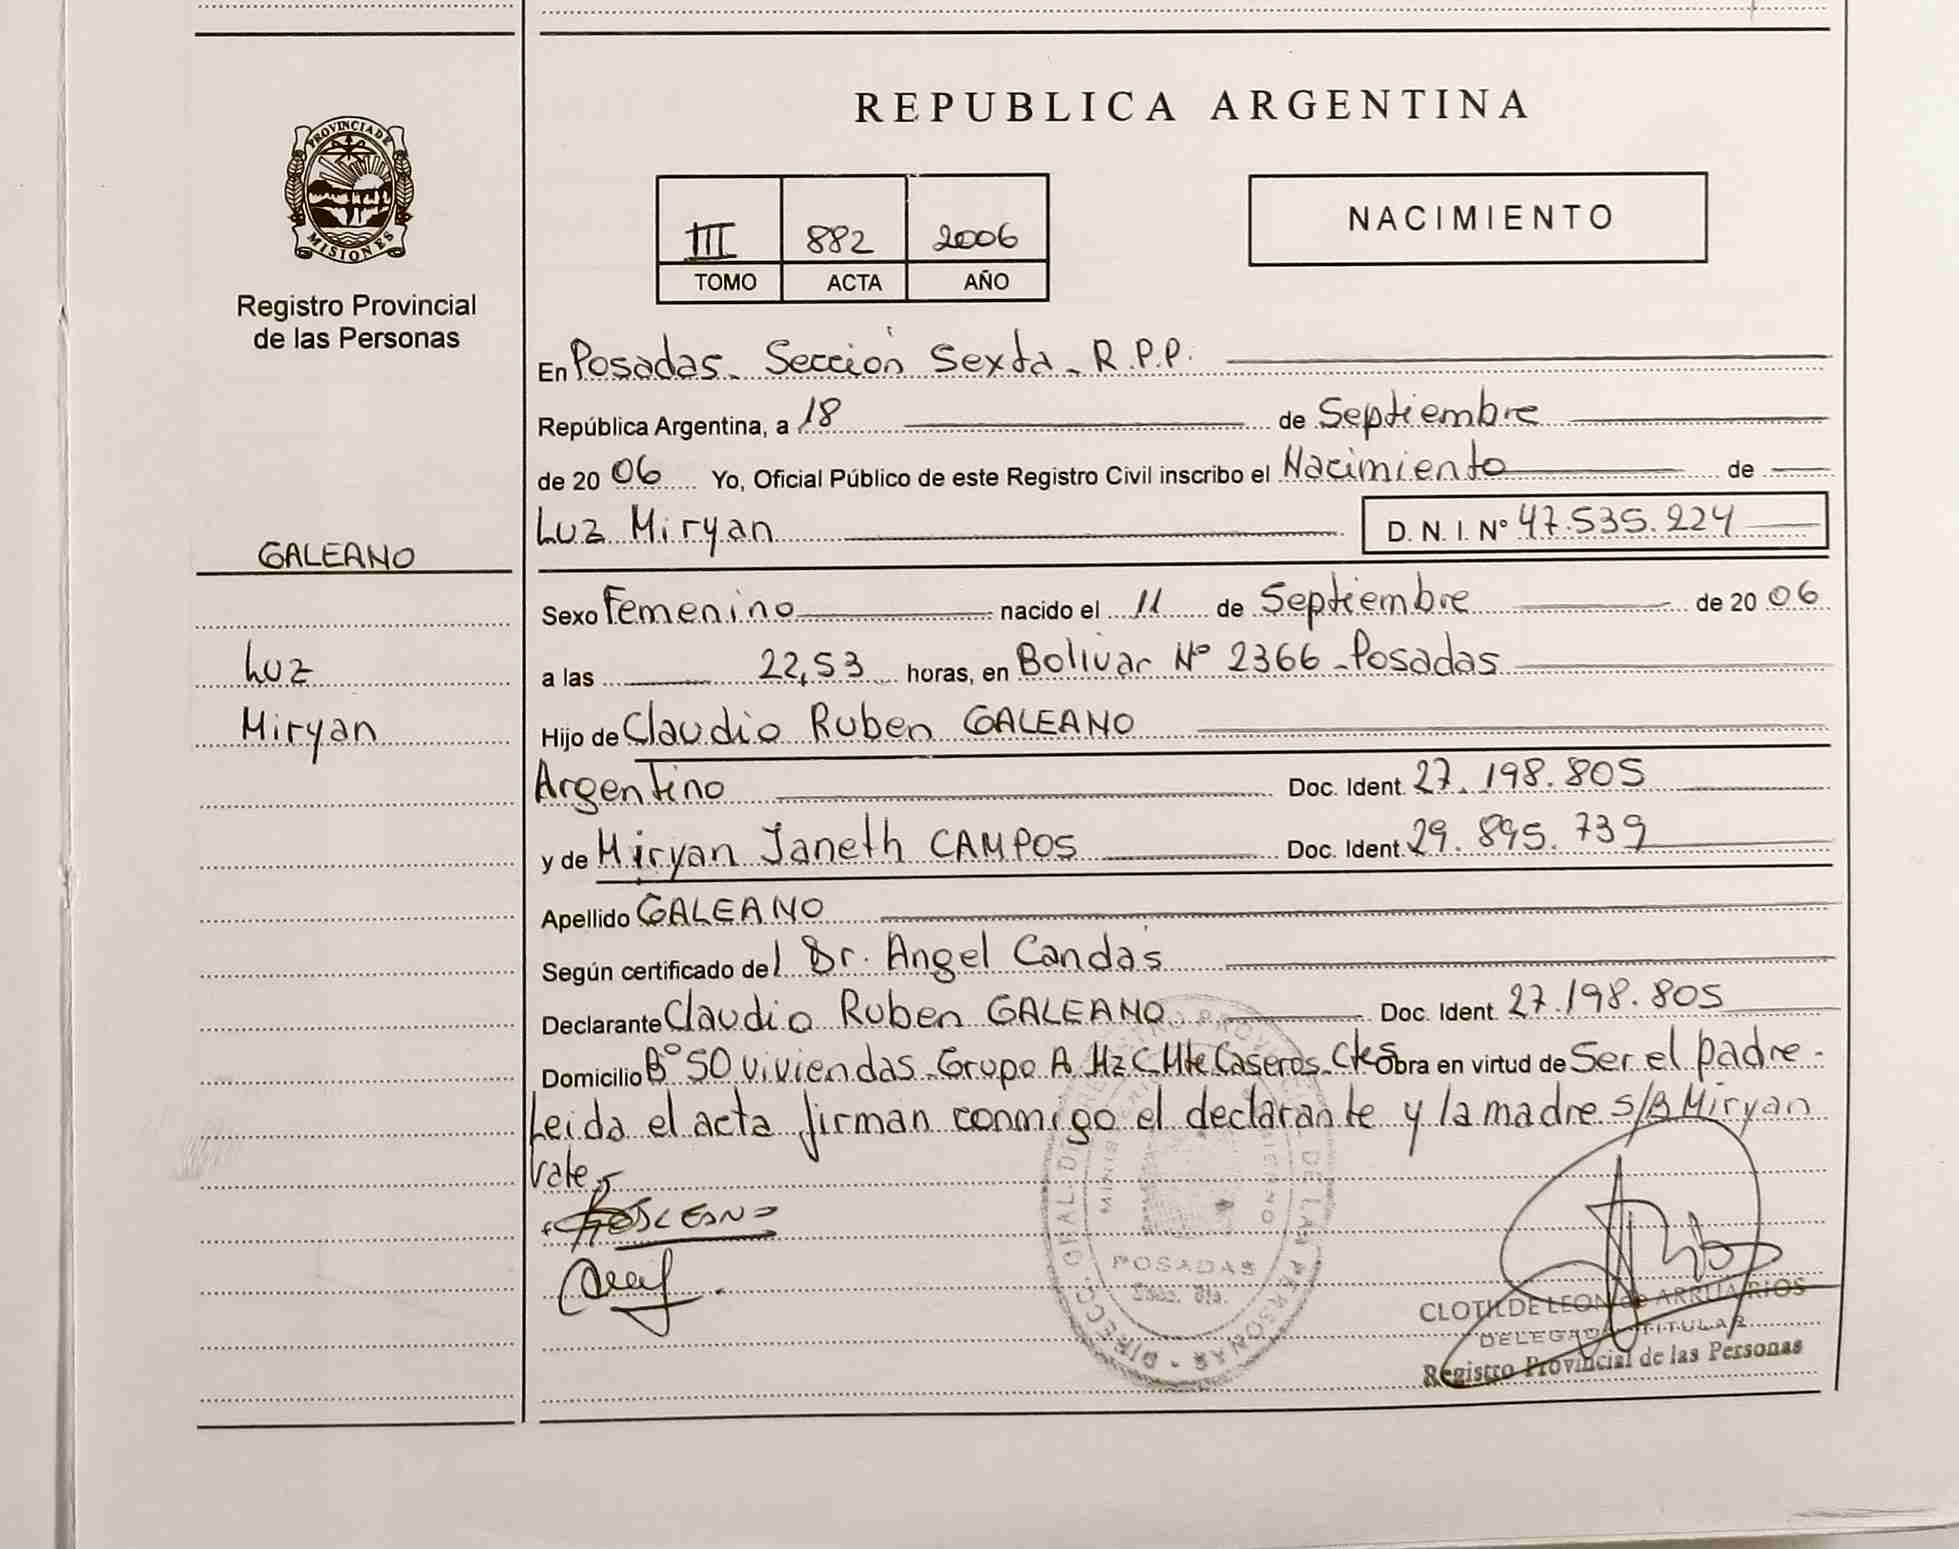 REPUBLICA ARGENTINA
PROVINCIA DE
MISIONES
Registro Provincial
de las Personas
III 882 2006
TOMO ACTA AÑO
NACIMIENTO
En Posadas - Sección Sexta - R.P.P.
República Argentina, a 18 de Septiembre
de 20 06 Yo, Oficial Público de este Registro Civil inscribo el Nacimiento de
Luz Miryan D. N. I. Nº 47.535.224
GALEANO
Luz
Miryan
Sexo Femenino nacido el 11 de Septiembre de 20 06
a las 22,53 horas, en Bolivar Nº 2366 - Posadas
Hijo de Claudio Ruben GALEANO
Argentino Doc. Ident. 27.198.805
y de Miryan Janeth CAMPOS Doc. Ident. 29.895.739
Apellido GALEANO
Según certificado del Dr. Angel Candás
Declarante Claudio Ruben GALEANO Doc. Ident. 27.198.805
Domicilio Bº 50 viviendas - Grupo A Mz C Mte Caseros - Ctes Obra en virtud de Ser el padre -
Leida el acta firman conmigo el declarante y la madre S/B Miryan
Vale -
GALEANO
POSADAS
CLOTILDE LEON de ARRUA RIOS
DELEGADA TITULAR
Registro Provincial de las Personas